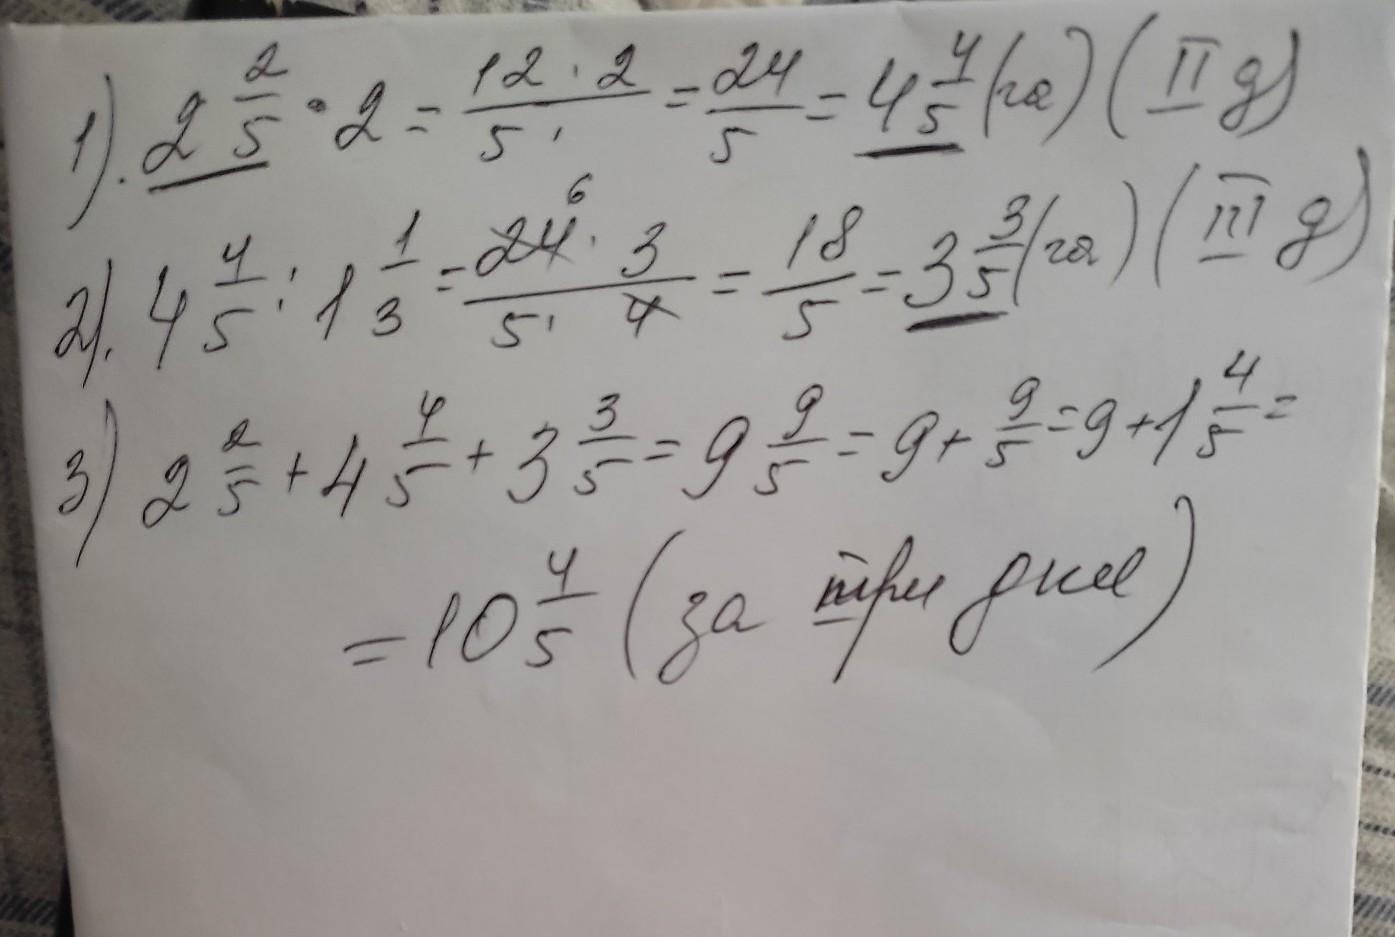 1). 2 2/5 · 2 = 12 · 2 / 5 · = 24/5 = 4 4/5 (га) (II д)
2). 4 4/5 : 1 1/3 = 24 6 · 3 / 5 · 4 = 18/5 = 3 3/5 (га) (III д)
3) 2 2/5 + 4 4/5 + 3 3/5 = 9 9/5 = 9 + 9/5 = 9 + 1 4/5 =
= 10 4/5 (за три дня)